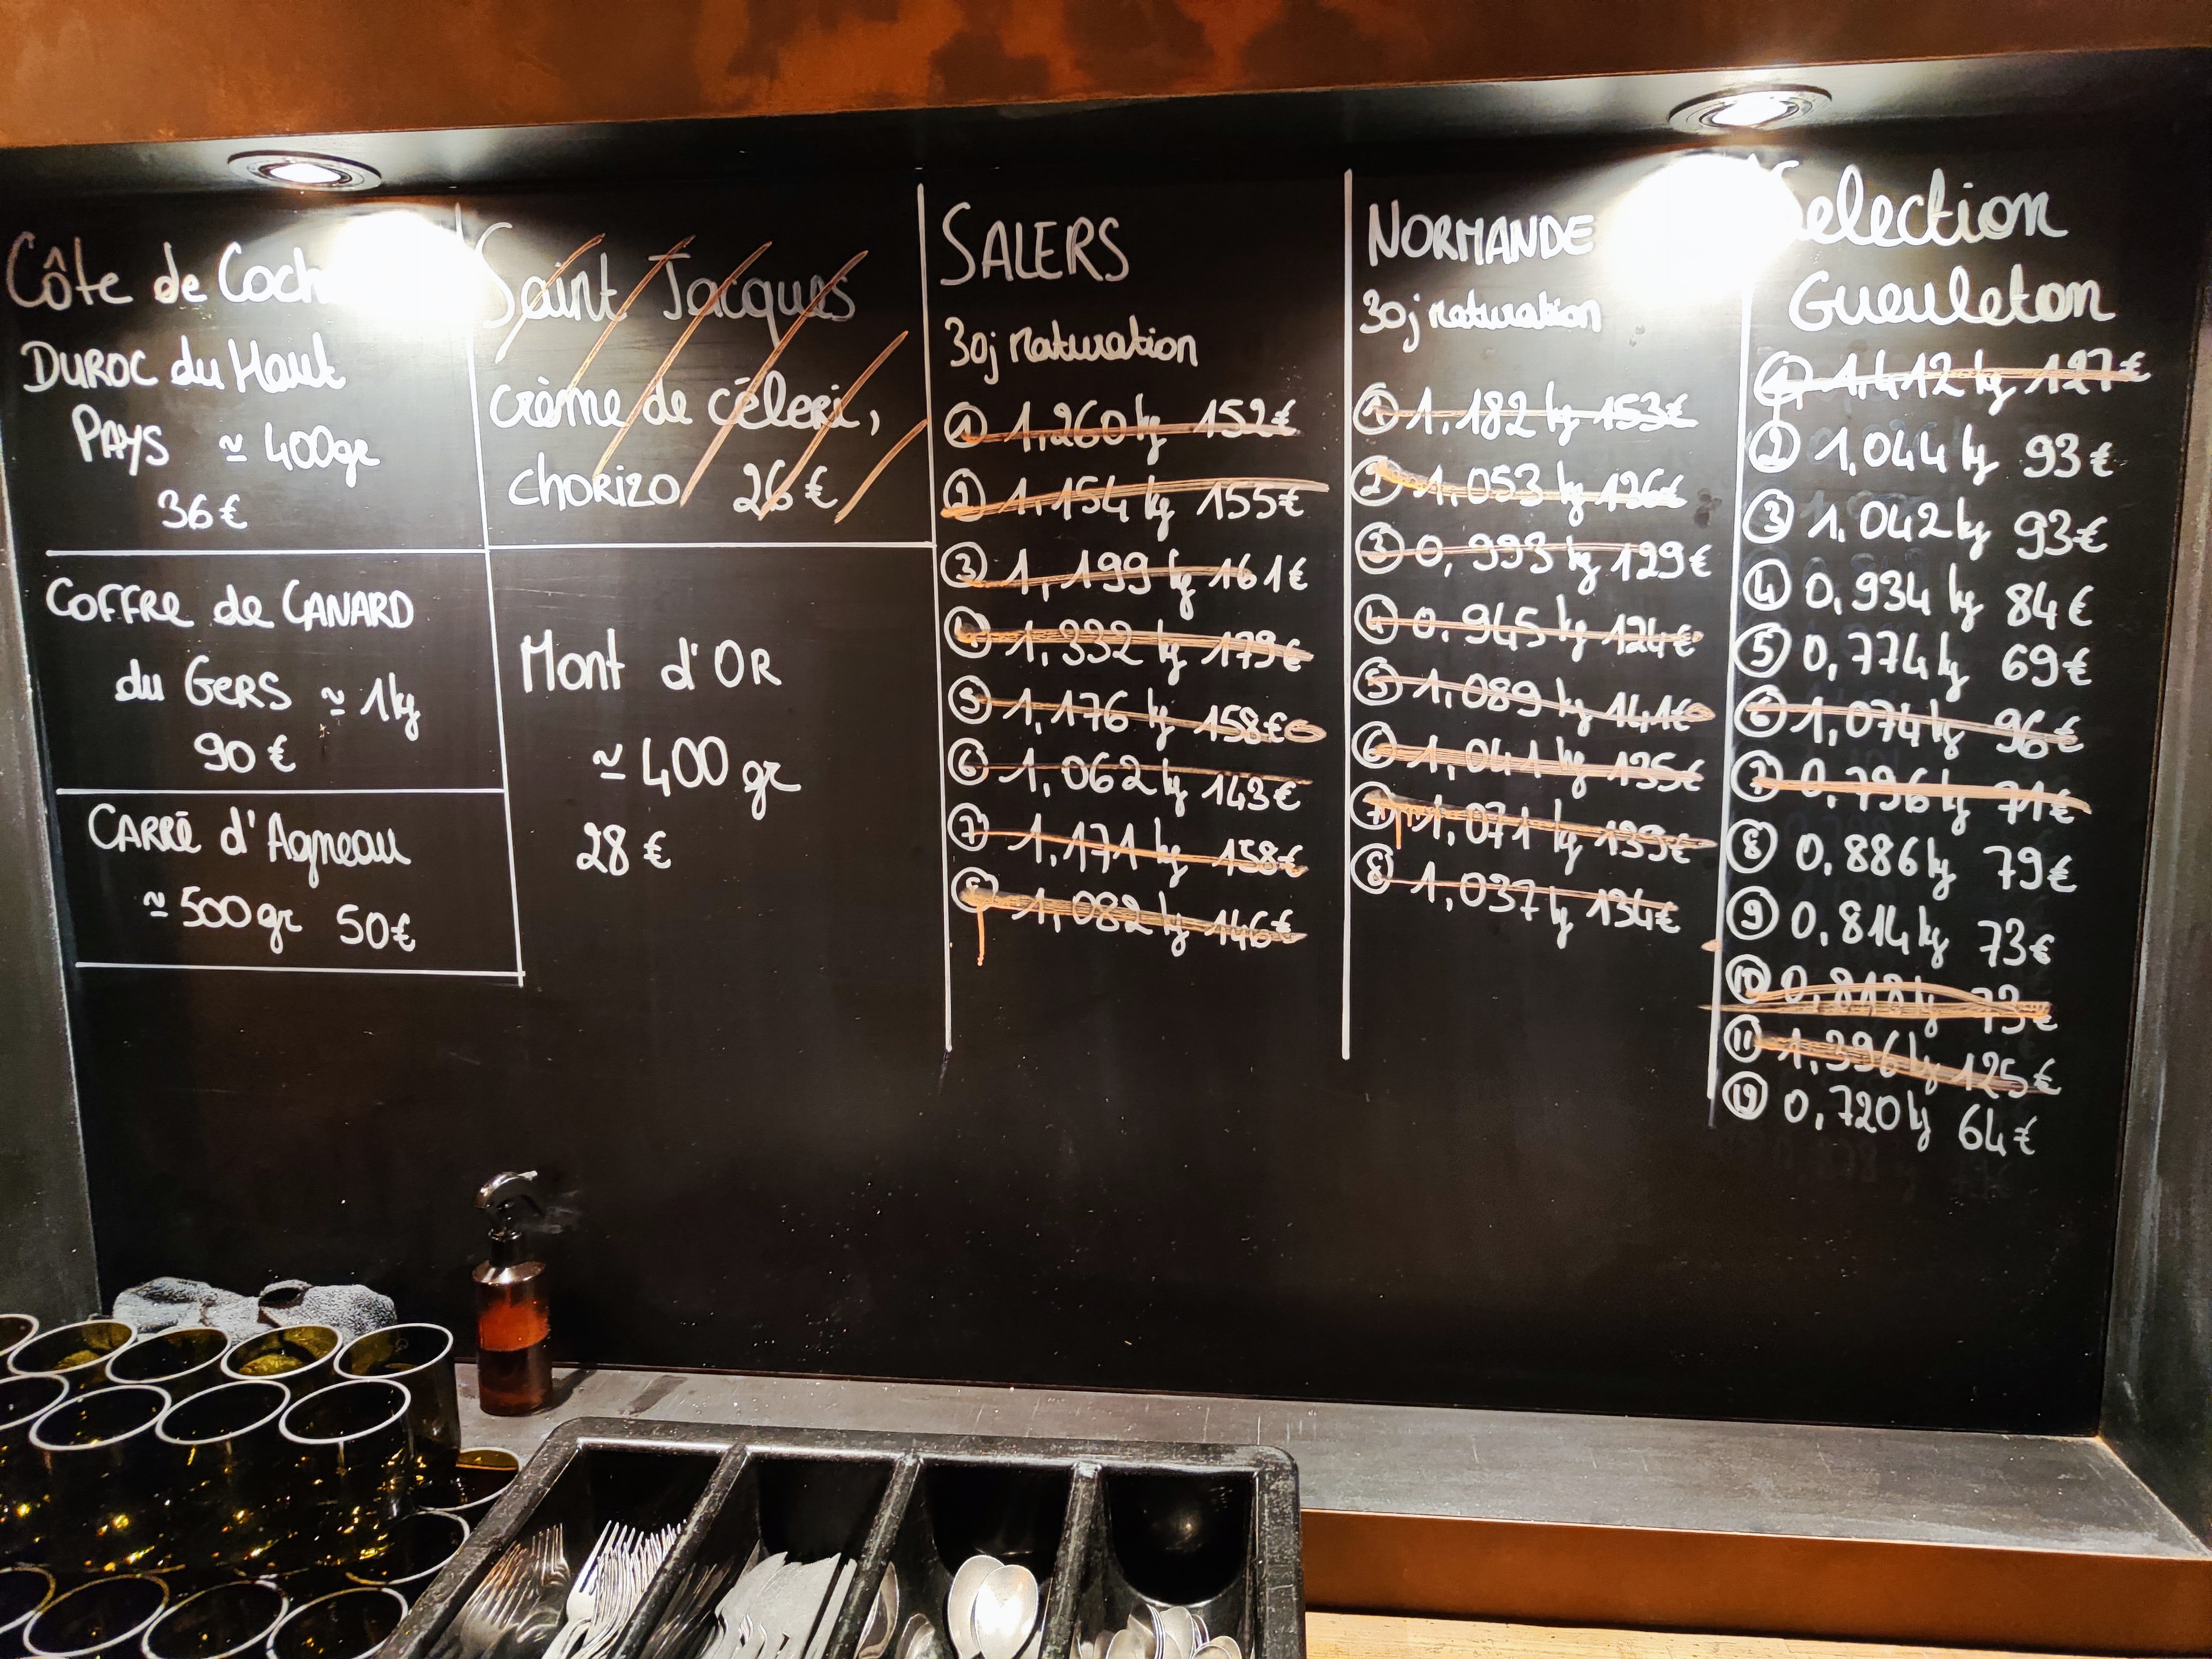 Côte de Coch
DUROC du Haut
PAYS ≃ 400gr
36€
COFFRE de CANARD
du GERS ≃ 1kg
90 €
CARRÉ d'Agneau
≃ 500gr 50€
Saint Jacques
crème de céleri,
CHORIZO 26€
Mont d'OR
≃ 400 gr
28 €
SALERS
30j maturation
① 1,260 kg 152€
② 1,154 kg 155€
③ 1,199 kg 161€
④ 1,332 kg 179€
⑤ 1,176 kg 158€
⑥ 1,062 kg 143€
⑦ 1,171 kg 158€
⑧ 1,082 kg 146€
NORMANDE
30j maturation
① 1,182 kg 153€
② 1,053 kg 136€
③ 0,993 kg 129€
④ 0,945 kg 124€
⑤ 1,089 kg 141€
⑥ 1,041 kg 135€
⑦ 1,071 kg 139€
⑧ 1,037 kg 134€
Selection
Gueuleton
① 1,412 kg 127€
② 1,044 kg 93€
③ 1,042 kg 93€
④ 0,934 kg 84€
⑤ 0,774 kg 69€
⑥ 1,074 kg 96€
⑦ 0,796 kg 71€
⑧ 0,886 kg 79€
⑨ 0,814 kg 73€
⑩ 0,818 kg 73€
⑪ 1,396 kg 125€
⑫ 0,720 kg 64€